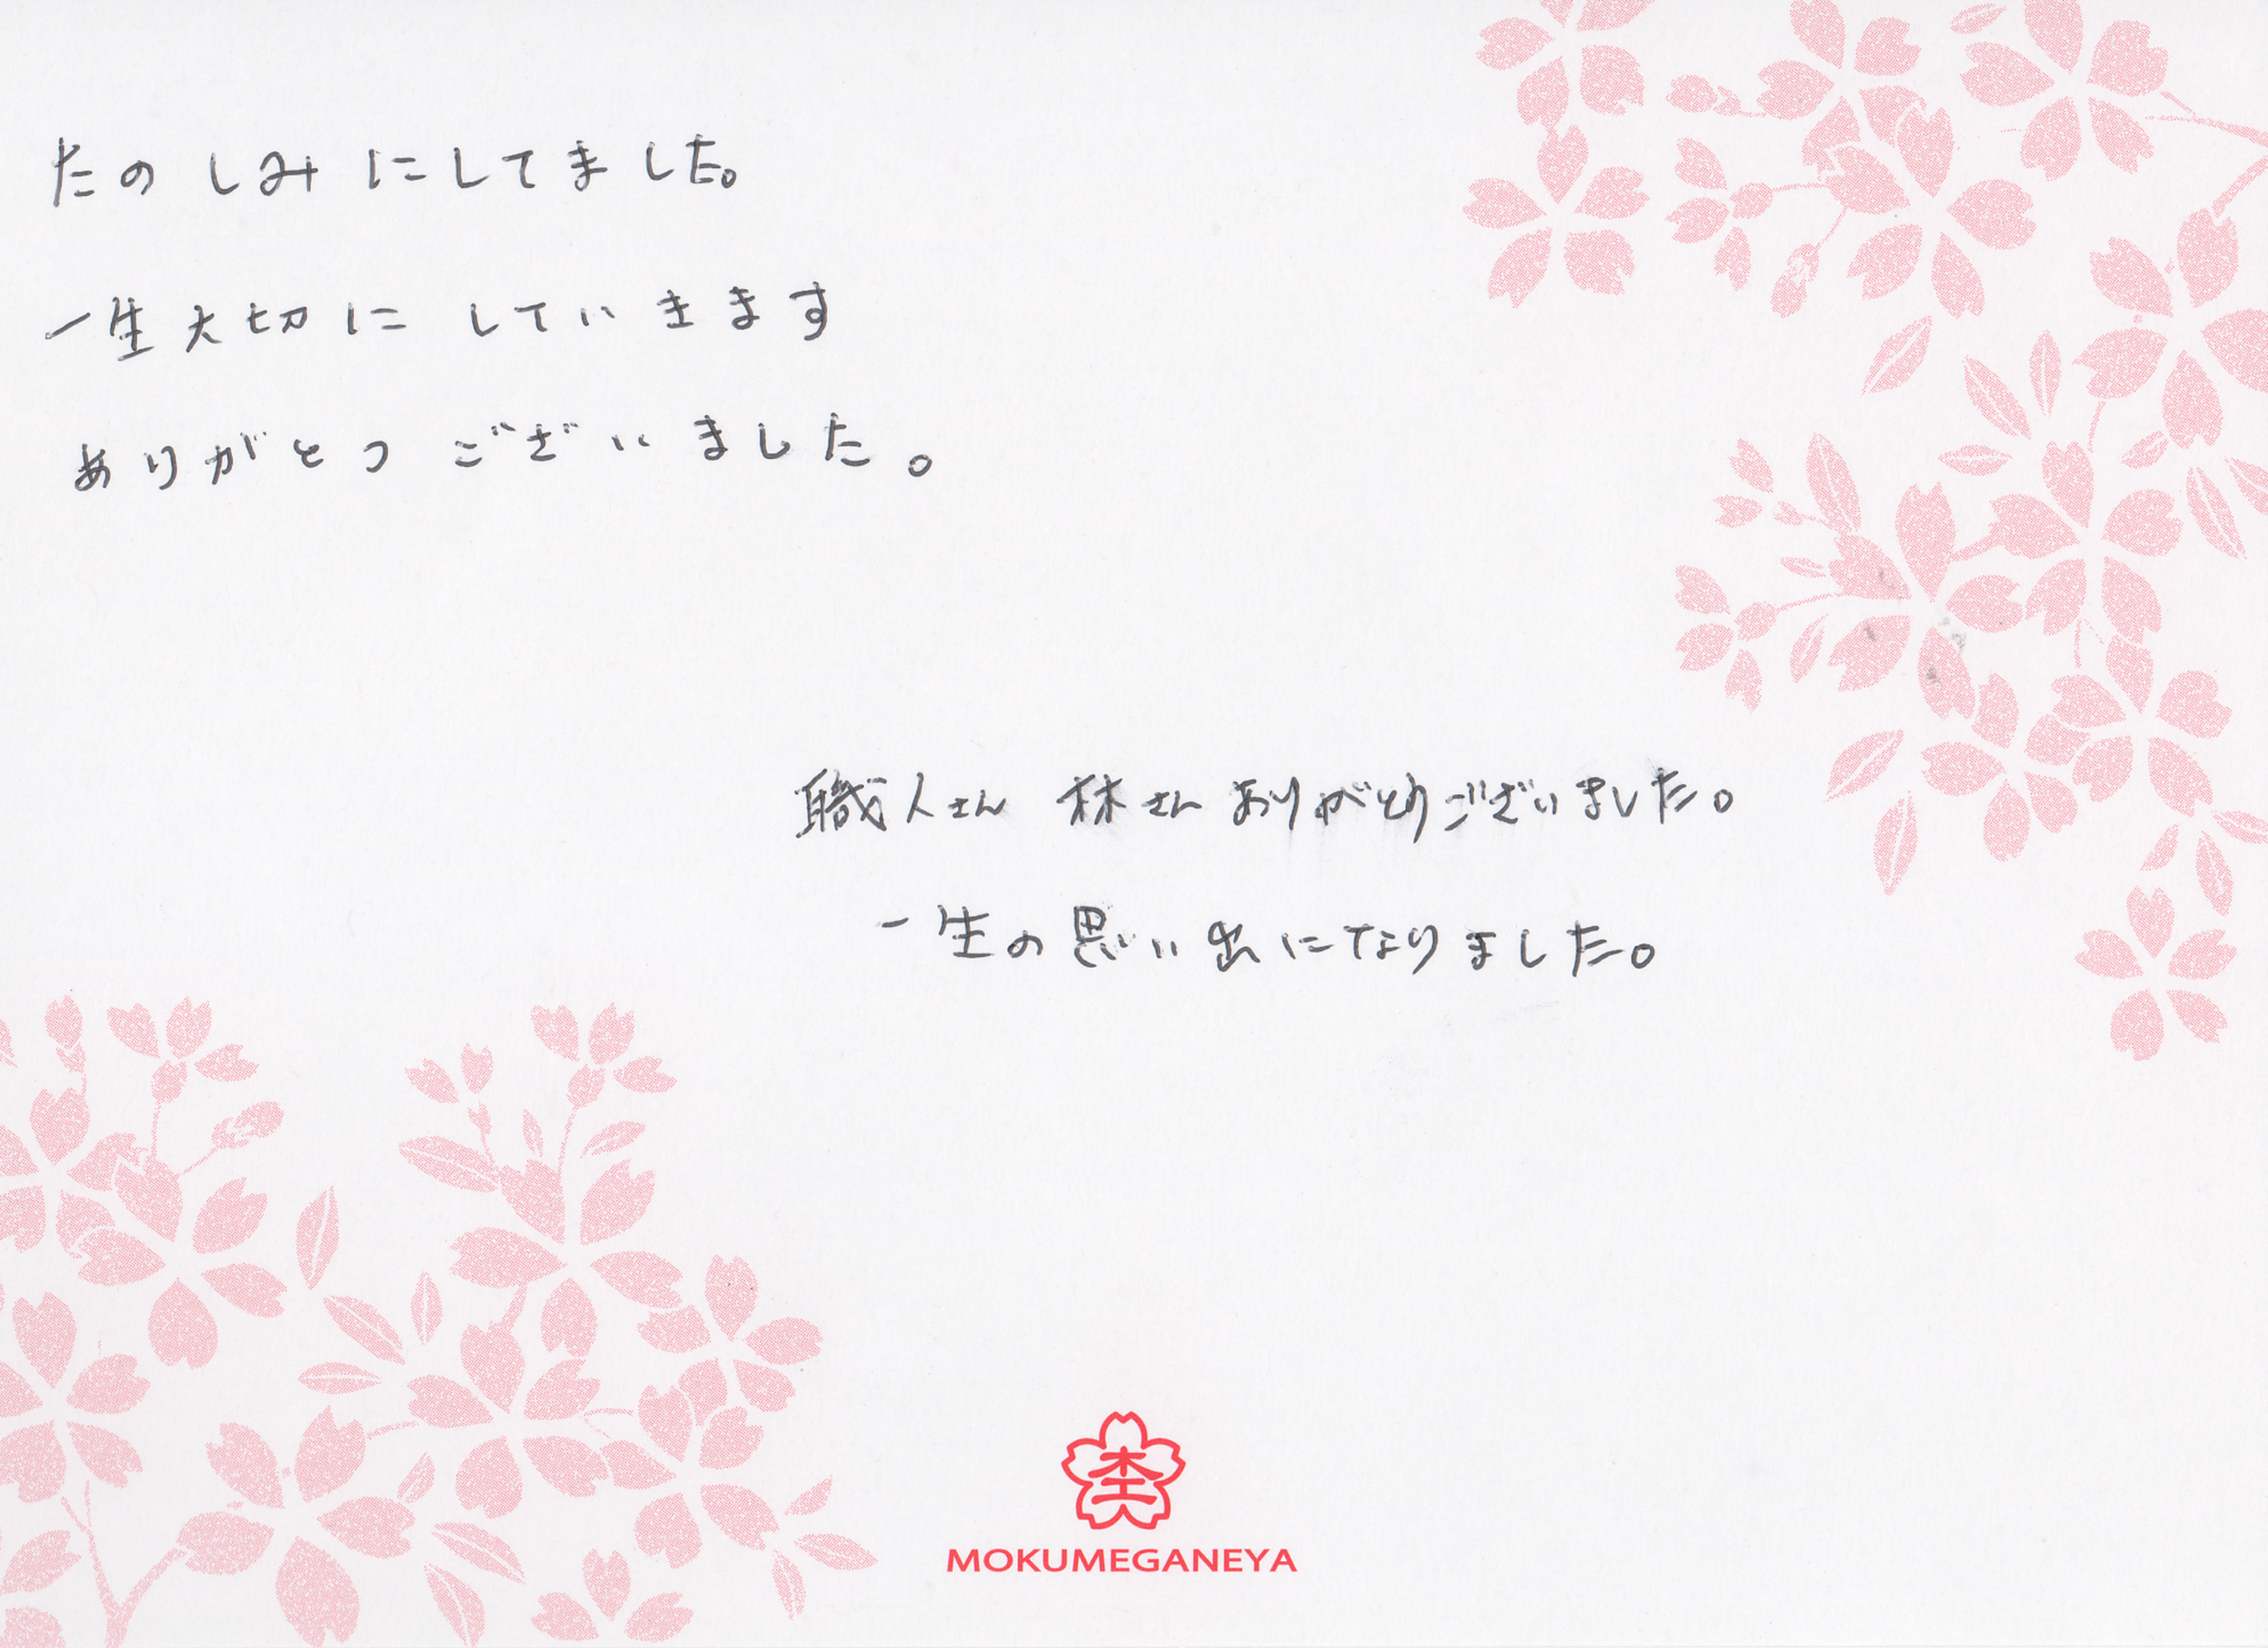 たのしみにしてました。
一生大切にしていきます
ありがとうございました。
職人さん 林さん ありがとうございました。
一生の思い出になりました。
杢
MOKUMEGANEYA